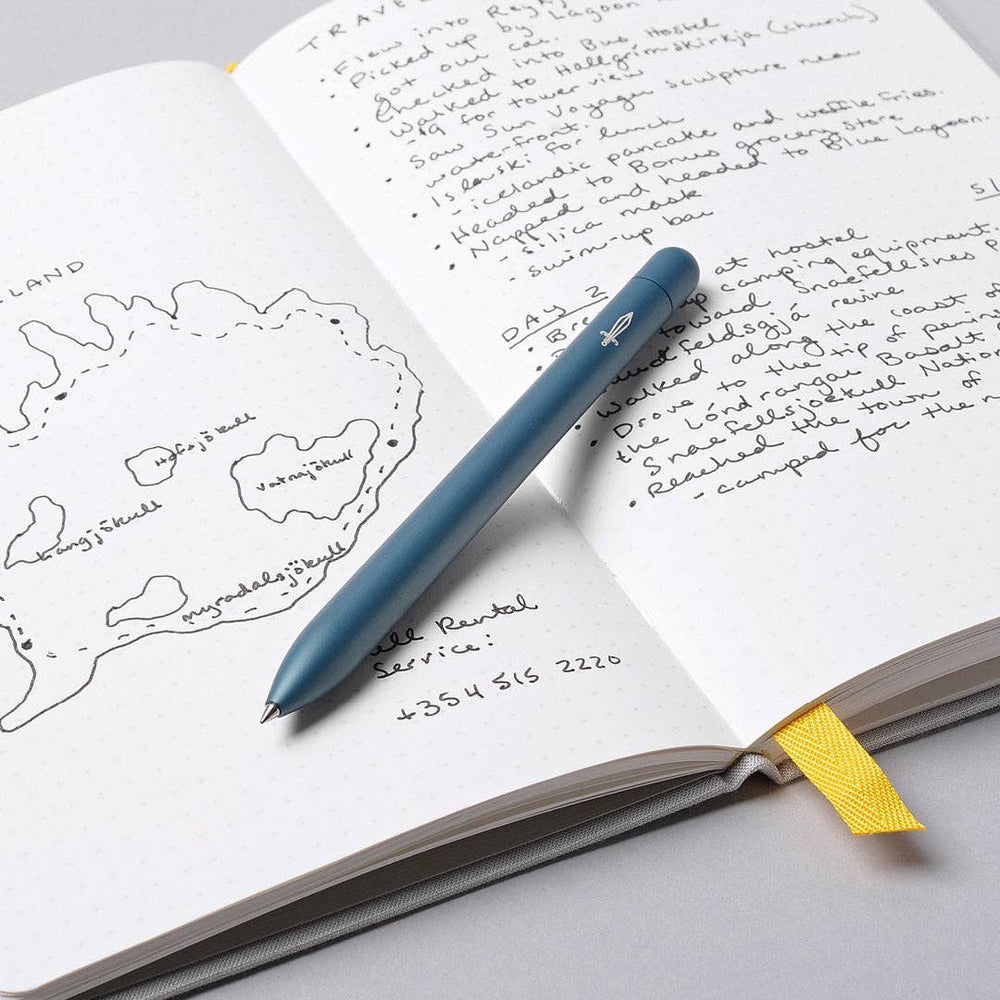 LAND
Hofsjökull
Vatnajökull
Langjökull
myradalsjökull
Rental
Service:
+354 515 2220
TRAVEL
• Flew into Reykj
• Picked up by Lagoon
got our car.
• Checked into Bus Hostel
• Walked to Hallgrímskirkja (church)
for tower view
• Saw Sun Voyager sculpture near
waterfront.
• Islenski for lunch
- icelandic pancake and waffle fries.
• Headed to Bonus grocery store
• Napped and headed to Blue Lagoon.
- silica mask
- swim-up bar
DAY 2
• at hostel
up camping equipment.
toward Snaefellsnes P
feldsgjá ravine
• Walked along the coast of
• Drove to the tip of penin
the Lóndrangar Basalt
Snaefellsjoekull Nation
• Reached the town of
- camped for the n